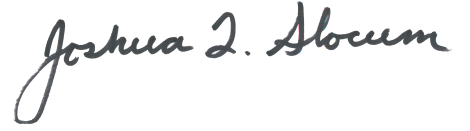 Joshua Q. Slocum